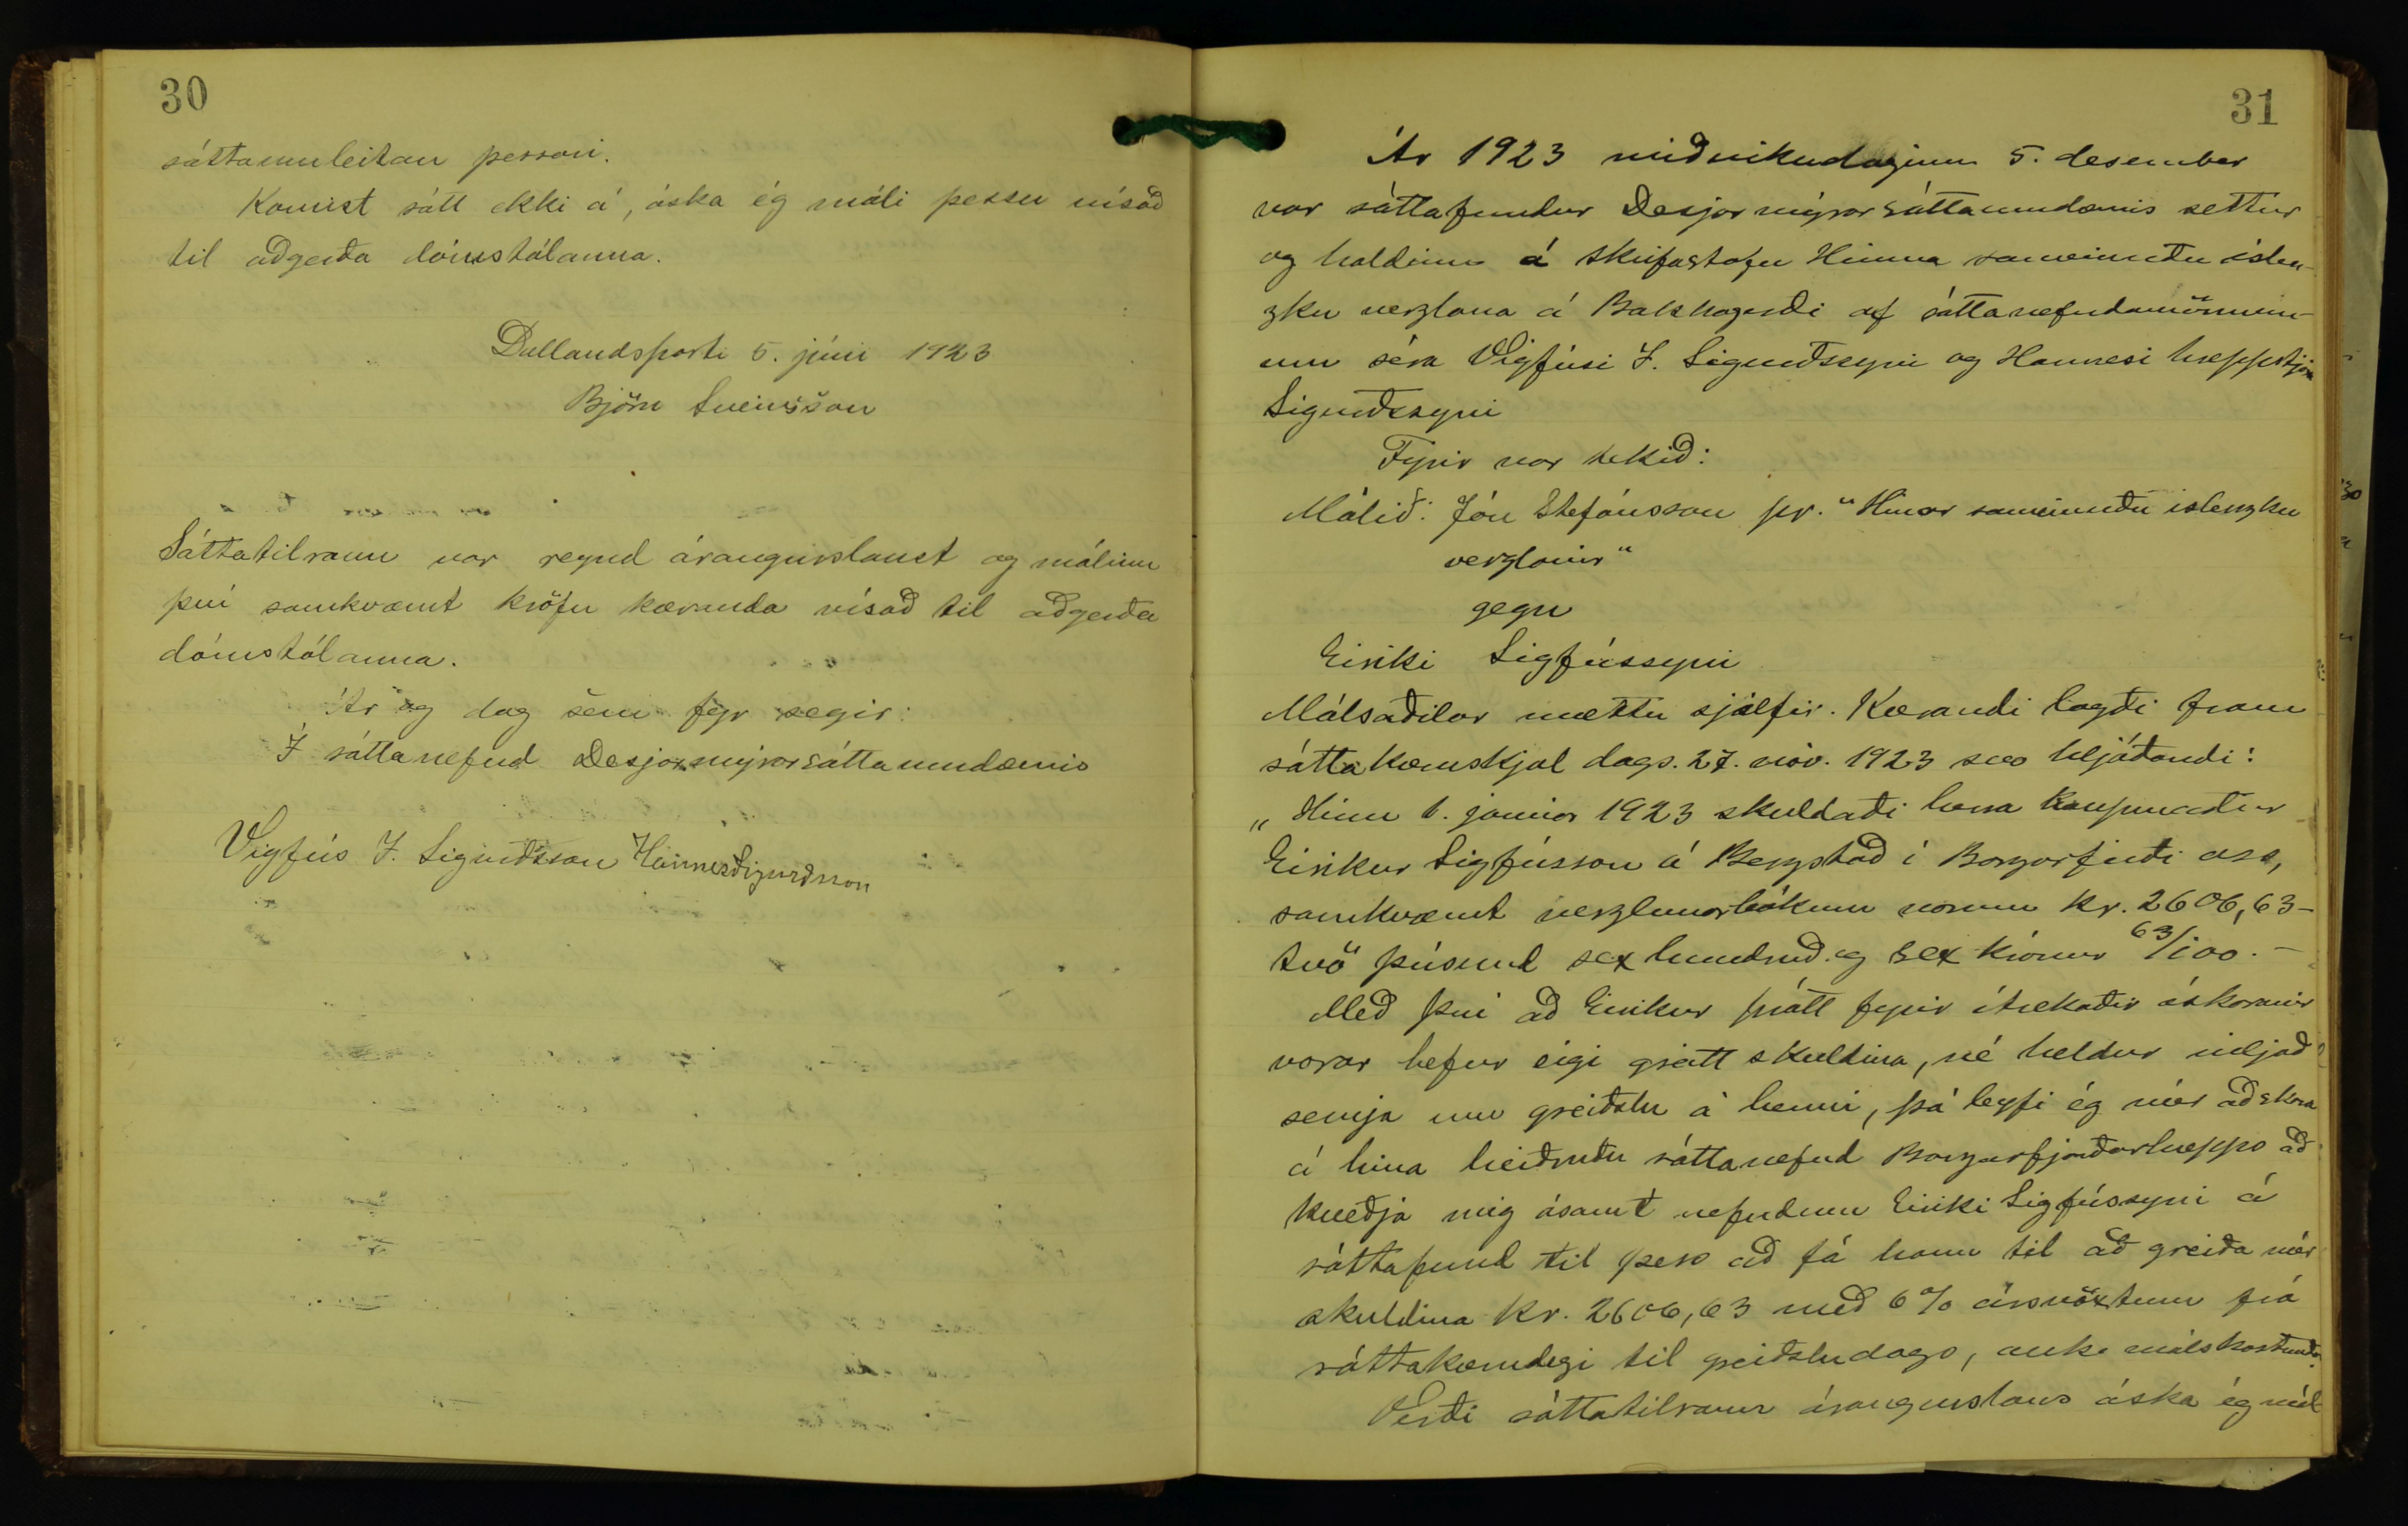 30
sáttaumleitan þessari.
Komist sátt ekki á, óska ég máli þessu vísað
til aðgerða dómstólanna.
Dallandsparti 5. júní 1923
Björn Sveinsson
Sáttatilraun var reynd árangurslaust og málinu
því samkvæmt kröfu kæranda vísað til aðgerða
dómstólanna.
Ár og dag sem fyr segir:
Í sáttanefnd Desjarmýrarsáttaumdæmis
Vigfús I. Sigurðsson Hannes Sigurðsson
31
Ár 1923 miðvikudaginn 5. desember
var sáttafundur Desjarmýrarsáttaumdæmis settur
og haldinn á skrifastofu Hinna sameinuðu íslen-
zku verzlana á Bakkagerði af sáttanefndamönnun-
um séra Vigfúsi I. Sigurðssyni og Hannesi hreppstjóra
Sigurðssyni
Fyrir var tekið:
Málið: Jón Stefánsson pr. "Hinar sameinuðu islenzku
verzlanir"
gegn
Eiriki Sigfússyni
Málsaðilar mættu sjálfir. Kærandi lagði fram
sáttakæruskjal dags. 27. nóv. 1923 svo hljóðandi:
„Hinn 1. janúar 1923 skuldaði herra kaupmaður
Eirikur Sigfússon á Bergstað í Borgarfirði oss,
samkvæmt verzlunarbókum vorum kr. 2606,63 -
tvö þúsund sex hundruð og sex krónur 63/100. -
Með því að Eirikur þrátt fyrir ítrekaðir áskoranir
vorar hefur eigi greitt skuldina, né heldur viljað
semja um greiðslu á henni, þá leyfi ég mér að skora
á hina heiðruðu sáttanefnd Borgarfjarðarhrepps að
kveðja mig ásamt nefndum Eiriki Sigfússyni á
sáttafund til þess að fá hann til að greiða mér
skuldina kr. 2606,63 með 6% ársvöxtum frá
sáttakærudegi til greiðsludags, auk málskostnaðar.
Verði sáttatilraun árangurslaus óska ég mál